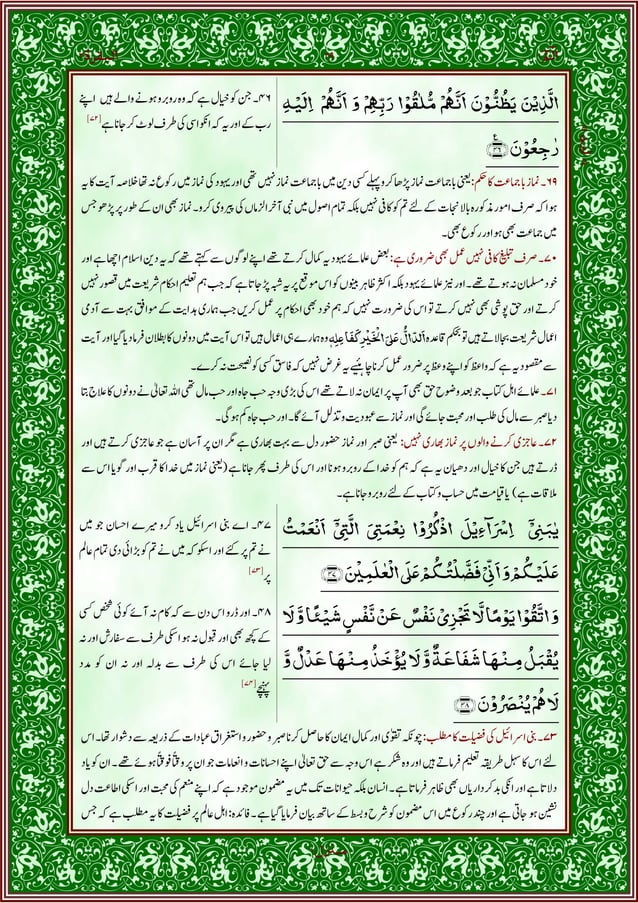 البقرة
الٓمّٓ
الَّذِیْنَ یَظُنُّوْنَ اَنَّهُمْ مُّلٰقُوْا رَبِّهِمْ وَ اَنَّهُمْ اِلَیْهِ
رٰجِعُوْنَ ﴿۴۶﴾
۴۶۔ جن کو خیال ہے کہ وہ روبرو ہونے والے ہیں اپنے
رب کے اور یہ کہ انکو اسی کی طرف لوٹ کر جانا ہے [۷۲]
۶۹۔ نماز باجماعت کا حکم: یعنی باجماعت نماز پڑھا کرو پہلے کسی دین میں باجماعت نماز نہیں تھی اور یہود کی نماز میں رکوع نہ تھا خلاصہ آیت کا یہ
ہوا کہ صرف امور مذکورہ بالا نجات کے لئے تم کو کافی نہیں بلکہ تمام اصول میں نبی آخر الزماں کی پیروی کرو۔ نماز بھی ان کے طور پر پڑھو جس
میں جماعت بھی ہو اور رکوع بھی۔
۷۰۔ صرف تبلیغ کافی نہیں عمل بھی ضروری ہے: بعض علمائے یہود یہ کمال کرتے تھے اپنے لوگوں سے کہتے تھے کہ یہ دین اسلام اچھا ہے اور
خود مسلمان نہ ہوتے تھے۔ اور نیز علمائے یہود بلکہ اکثر ظاہر بینوں کو اس موقع پر یہ شبہ پڑ جاتا ہے کہ جب ہم تعلیم احکام شریعت میں قصور نہیں
کرتے اور حق پوشی بھی نہیں کرتے تو اس کی ضرورت نہیں کہ ہم خود بھی احکام پر عمل کریں جب ہماری ہدایت کے موافق بہت سے آدمی
اعمال شریعت بجا لاتے ہیں تو بحکم قاعدہ اَلدَّالُّ عَلَی الْخَیْرِ کَفَاعِلِهٖ وہ ہمارے ہی اعمال ہیں تو اس آیت میں دونوں کا بطلان فرما دیا گیا اور آیت
سے مقصود یہ ہے کہ واعظ کو اپنے وعظ پر ضرور عمل کرنا چاہیئے یہ غرض نہیں کہ فاسق کسی کو نصیحت نہ کرے۔
۷۱۔ علمائے اہل کتاب جو بعد وضوح حق بھی آپ پر ایمان نہ لاتے تھے اس کی بڑی وجہ حب جاہ اور حب مال تھی اللہ تعالیٰ نے دونوں کا علاج بتا
دیا صبر سے مال کی طلب اور محبت جائے گی اور نماز سے عبودیت و تذلل آئے گا۔ اور حب جاہ کم ہو گی۔
۷۲۔ عاجزی کرنے والوں پر نماز بھاری نہیں: یعنی صبر اور نماز حضور دل سے بہت بھاری ہے مگر ان پر آسان ہے جو عاجزی کرتے ہیں اور
ڈرتے ہیں جن کا خیال اور دھیان یہ ہے کہ ہم کو خدا کے روبرو ہونا اور اس کی طرف پھر جانا ہے (یعنی نماز میں خدا کا قرب اور گویا اس سے
ملاقات ہے) یا قیامت میں حساب و کتاب کے لئے روبرو جانا ہے۔
یٰبَنِیْۤ اِسْرَآءِیْلَ اذْكُرُوْا نِعْمَتِیَ الَّتِیْۤ اَنْعَمْتُ
عَلَیْكُمْ وَ اَنِّیْ فَضَّلْتُكُمْ عَلَی الْعٰلَمِیْنَ ﴿۴۷﴾
۴۷۔ اے بنی اسرائیل یاد کرو میرے احسان جو میں
نے تم پر کئے اور اسکو کہ میں نے تم کو بڑائی دی تمام عالم
پر [۷۳]
وَ اتَّقُوْا یَوْمًا لَّا تَجْزِیْ نَفْسٌ عَنْ نَّفْسٍ شَیْـًٔا وَّ لَا
یُقْبَلُ مِنْهَا شَفَاعَةٌ وَّ لَا یُؤْخَذُ مِنْهَا عَدْلٌ وَّ
لَا هُمْ یُنْصَرُوْنَ ﴿۴۸﴾
۴۸۔ اور ڈرو اس دن سے کہ کام نہ آئے کوئی شخص کسی
کے کچھ بھی اور قبول نہ ہو اسکی طرف سے سفارش اور نہ
لیا جائے اس کی طرف سے بدلہ اور نہ ان کو مدد
پہنچے [۷۴]
۷۳۔ بنی اسرائیل کی فضیلت کا مطلب: چونکہ تقوٰی اور کمال ایمان کا حاصل کرنا صبر و حضور و استغراق عبادات کے ذریعہ سے دشوار تھا۔ اس
لئے اس کا سہل طریقہ تعلیم فرماتے ہیں اور وہ شکر ہے اس وجہ سے حق تعالیٰ اپنے احسانات و انعامات جو ان پر وقتًا فوقتًا ہوئے تھے۔ ان کو یاد
دلاتا ہے اور انکی بدکرداریاں بھی ظاہر فرماتا ہے۔ انسان بلکہ حیوانات تک میں یہ مضمون موجود ہے کہ اپنے منعم کی محبت اور اسکی اطاعت دل
نشین ہو جاتی ہے اور چند رکوع میں اس مضمون کو شرح و بسط کے ساتھ بیان فرمایا گیا ہے۔ فائدہ: اہل عالم پر فضیلت کا یہ مطلب ہے کہ جس